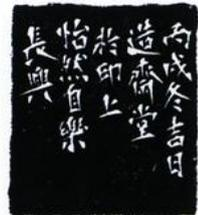 丙戌冬吉日
造齋堂
於印上
怡然自樂
長興